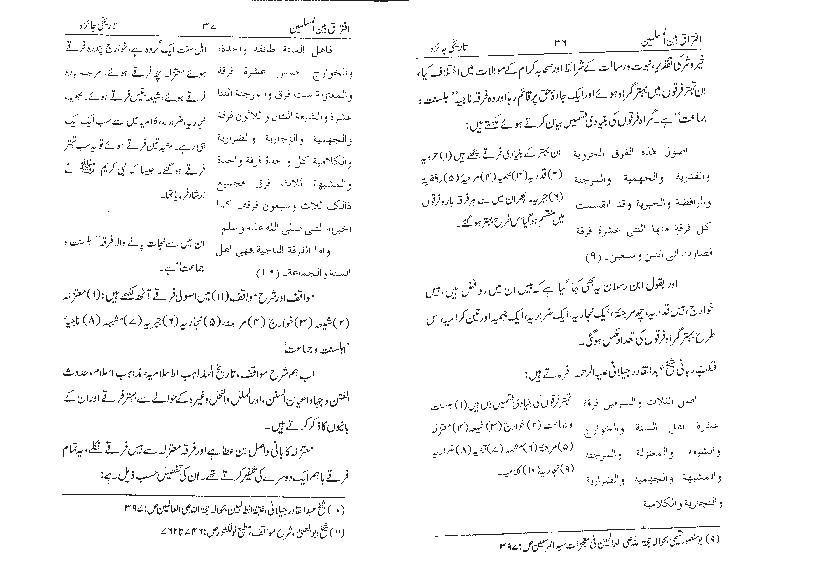 افتراق بین المسلمین ۳۶ تاریخی جائزہ
خیر و شر کی تقدیر، نبوت و رسالت کے شرائط اور صحابہ کرام کے موالات میں اختلاف کیا،
ان بہتر فرقوں میں بہتر گمراہ ہوئے اور ایک جادۂ حق پر قائم رہا اور وہ فرقہ ناجیہ "اہلسنت و
جماعت" ہے۔ گمراہ فرقوں کی بنیادی قسمیں بیان کرتے ہوئے لکھتے ہیں:
اصول هذه الفرق الحرورية
والقدرية والجهمية والمرجئة
والرافضة والجبرية وقد انقسمت
كل فرقة منها اثنتى عشرة فرقة
فصارت الى اثنين وسبعين۔ (۹)
ان بہتر کے بنیادی فرقے چھ ہیں (۱) حروریہ
(۲) قدریہ (۳) جہمیہ (۴) مرجیہ (۵) رافضیہ
(۶) جبریہ۔ پھر ان میں سے ہر فرقہ بارہ فرقوں
میں منقسم ہو گیا اس طرح بہتر ہو گئے۔
اور بقول ابن رسلان یہ بھی کہا گیا ہے کہ بیس ان میں روافض ہیں، بیس
خوارج، بیس قدریہ، چھ مرجئہ، ایک نجاریہ، ایک ضرریہ، ایک جہمیہ اور تین کرامیہ، اس
طرح بہتر گمراہ فرقوں کی تعداد مکمل ہو گئی۔
قطب ربانی شیخ عبدالقادر جیلانی علیہ الرحمہ فرماتے ہیں:
اصل الثلاث والسبعين فرقة
عشرة اهل السنة والخوارج
والشيعة والمعتزلة والمرجئة
والمشبهة والجهمية والضرارية
والنجارية والكلابية
تہتر فرقوں کی بنیادی قسمیں دس ہیں (۱) اہلسنت
و جماعت (۲) خوارج (۳) شیعہ (۴) معتزلہ
(۵) مرجیہ (۶) مشبہہ (۷) جہمیہ (۸) ضراریہ
(۹) نجاریہ (۱۰) کلابیہ۔
(۹) ابو منصور تمیمی بحوالہ حجۃ اللہ علی العالمین فی معجزات سید المرسلین ص: ۳۹۷
افتراق بین المسلمین ۳۷ تاریخی جائزہ
فاهل السنة طائفة واحدة،
والخوارج خمس عشرة فرقة
والمعتزلة ست فرق والمرجئة اثنتا
عشرة والشيعة اثنتان وثلاثون فرقة
والجهمية والنجارية والضرارية
والكلابية كل واحدة فرقة واحدة
والمشبهة ثلاث فرق فجميع
ذالك ثلاث وسبعون فرقة كما
اخبر النبى صلى الله عليه وسلم
واما الفرقة الناجية فهى اهل
السنة والجماعة۔ (۱۰)
اہل سنت ایک گروہ ہے، خوارج پندرہ فرقے
ہوئے، معتزلہ چھ فرقے ہوئے، مرجیہ بارہ
فرقے ہوئے، شیعہ بتیس فرقے ہوئے۔ جہمیہ،
نجاریہ، ضراریہ، کلابیہ میں سے سب ایک ایک
ہی رہے۔ مشبہہ تین فرقے ہوئے تو یہ سب تہتر
فرقے ہو گئے۔ جیسا کہ نبی کریم ﷺ نے
ارشاد فرمایا تھا۔
ان میں سے نجات پانے والا فرقہ "اہلسنت و
جماعت" ہے۔
مواقف اور شرح مواقف (۱۱) میں اصولی فرقے آٹھ لکھتے ہیں: (۱) معتزلہ
(۲) شیعہ (۳) خوارج (۴) مرجئہ (۵) نجاریہ (۶) جبریہ (۷) مشبہہ (۸) ناجیہ
"اہلسنت و جماعت"
اب ہم شرح مواقف، تاریخ المذاہب الاسلامیہ، مذاہب الاسلام، حدوث
الفتن و جہاد اعیان السنن، اور الملل والنحل وغیرہ کے حوالے سے بہتر فرقے اور ان کے
بانیوں کا ذکر کرتے ہیں۔
معتزلہ کا بانی واصل بن عطا ہے اور فرقہ معتزلہ سے بیس فرقے نکلے، یہ تمام
فرقے باہم ایک دوسرے کی تکفیر کرتے تھے۔ ان کی تفصیل حسب ذیل ہے:
(۱۰) شیخ عبدالقادر جیلانی، غنیۃ الطالبین بحوالہ حجۃ اللہ علی العالمین ص: ۳۹۷
(۱۱) شرح مواقف، مطبع نولکشور ص: ۷۴۶ تا ۷۶۲